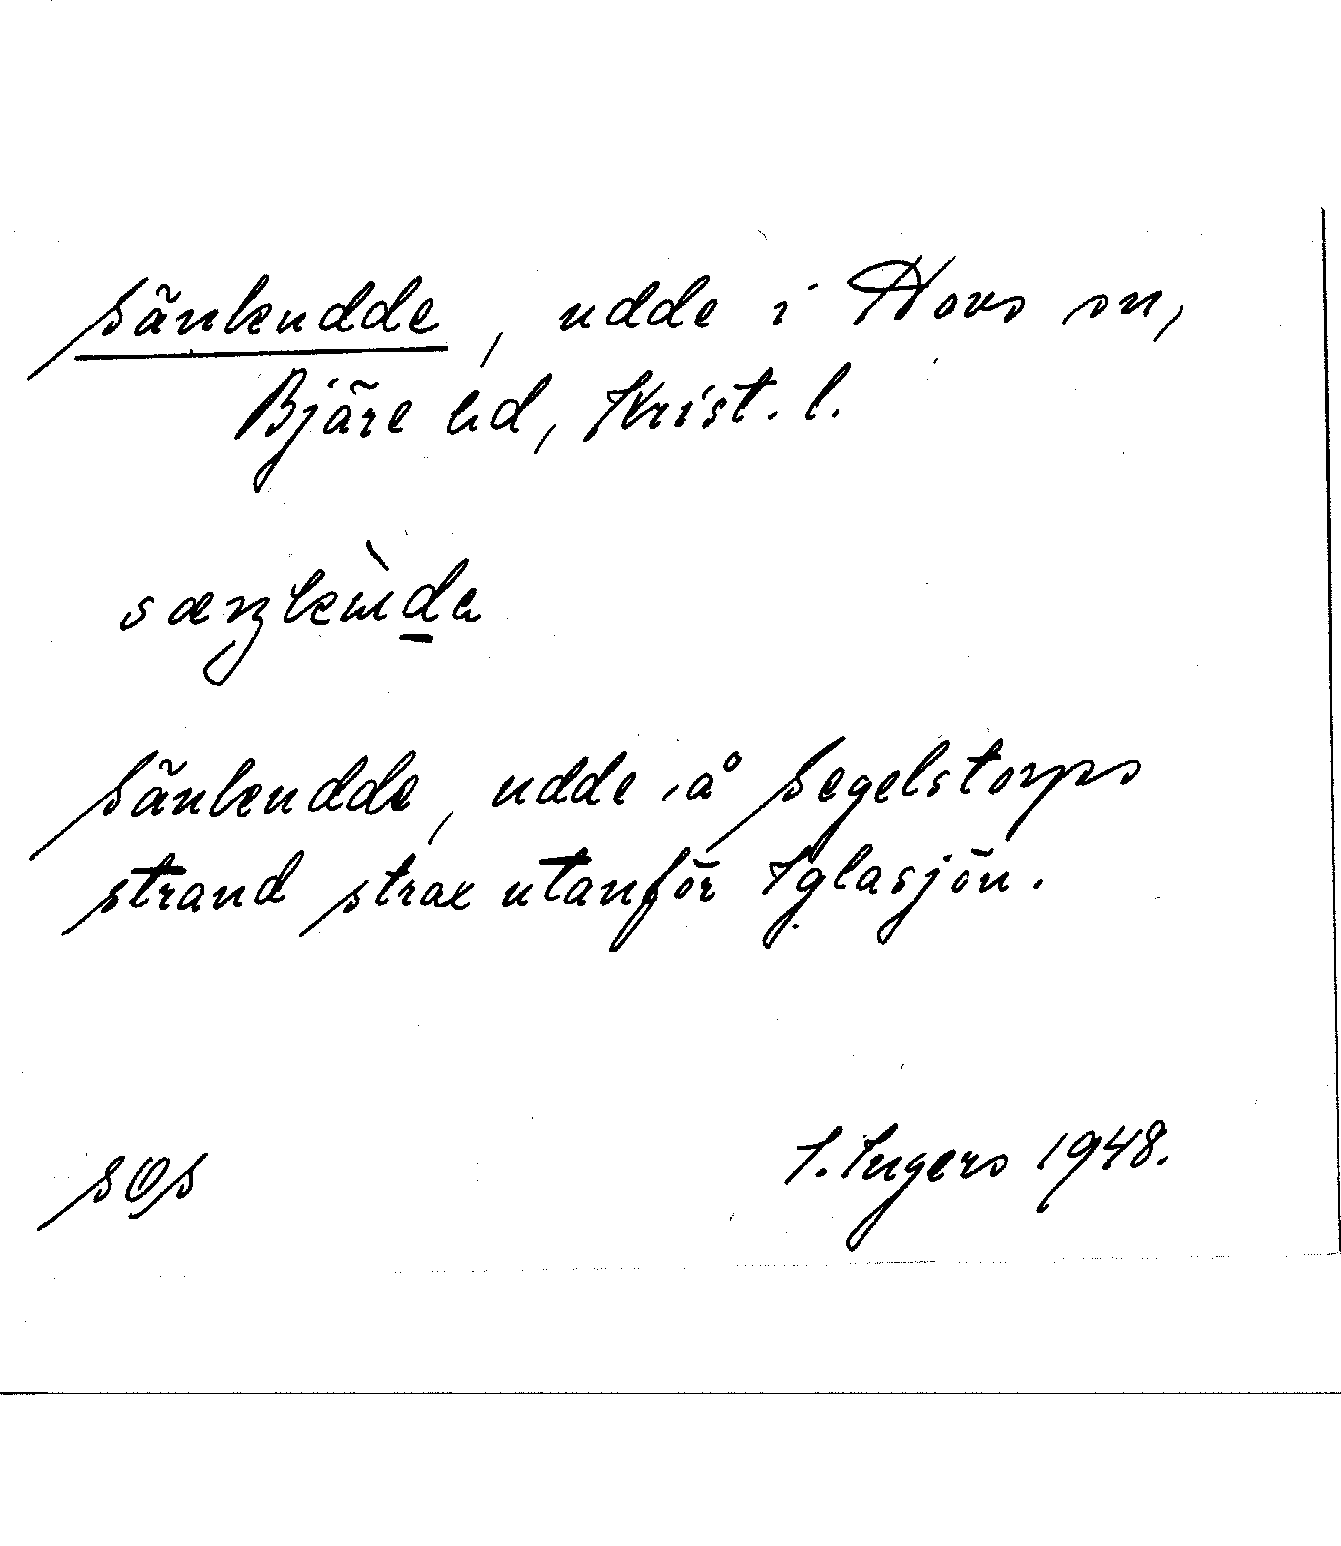 Sänkudde, udde i Hovs sn,
Bjäre hd, Krist. l.
sæŋkùda
Sänkudde, udde å Segelstorps
strand strax utanför Iglasjön.
SOS I. Ingers 1948.